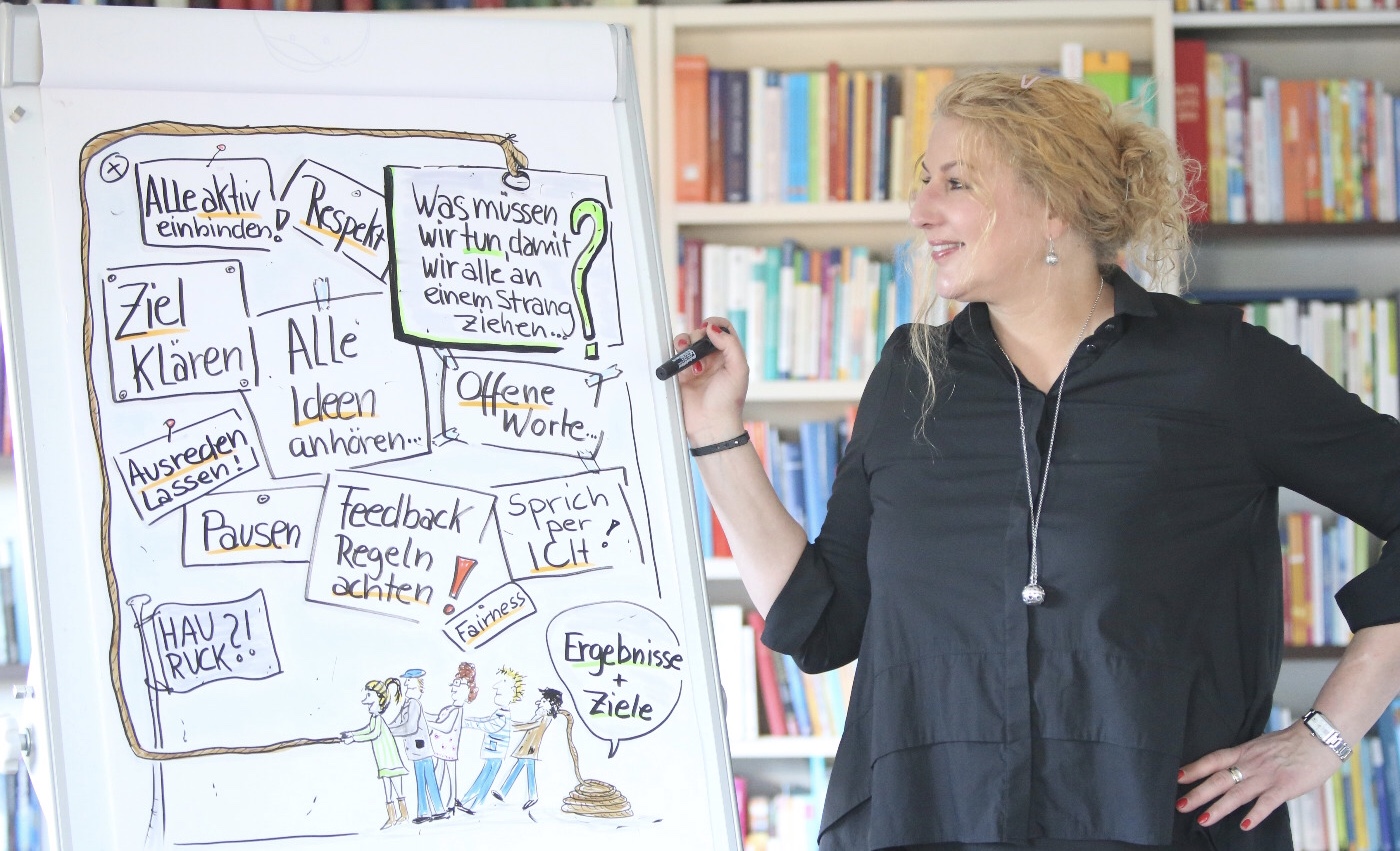 Alle aktiv
einbinden!
Respekt
Was müssen
wir tun, damit
wir alle an
einem Strang
ziehen...
?
Ziel
Klären
ALLe
Ideen
anhören...
Offene
Worte...
Ausreden
Lassen!
Pausen
Feedback
Regeln
achten!
Sprich
per
ICH!
Fairness
HAU
RUCK?!
Ergebnisse
+
Ziele